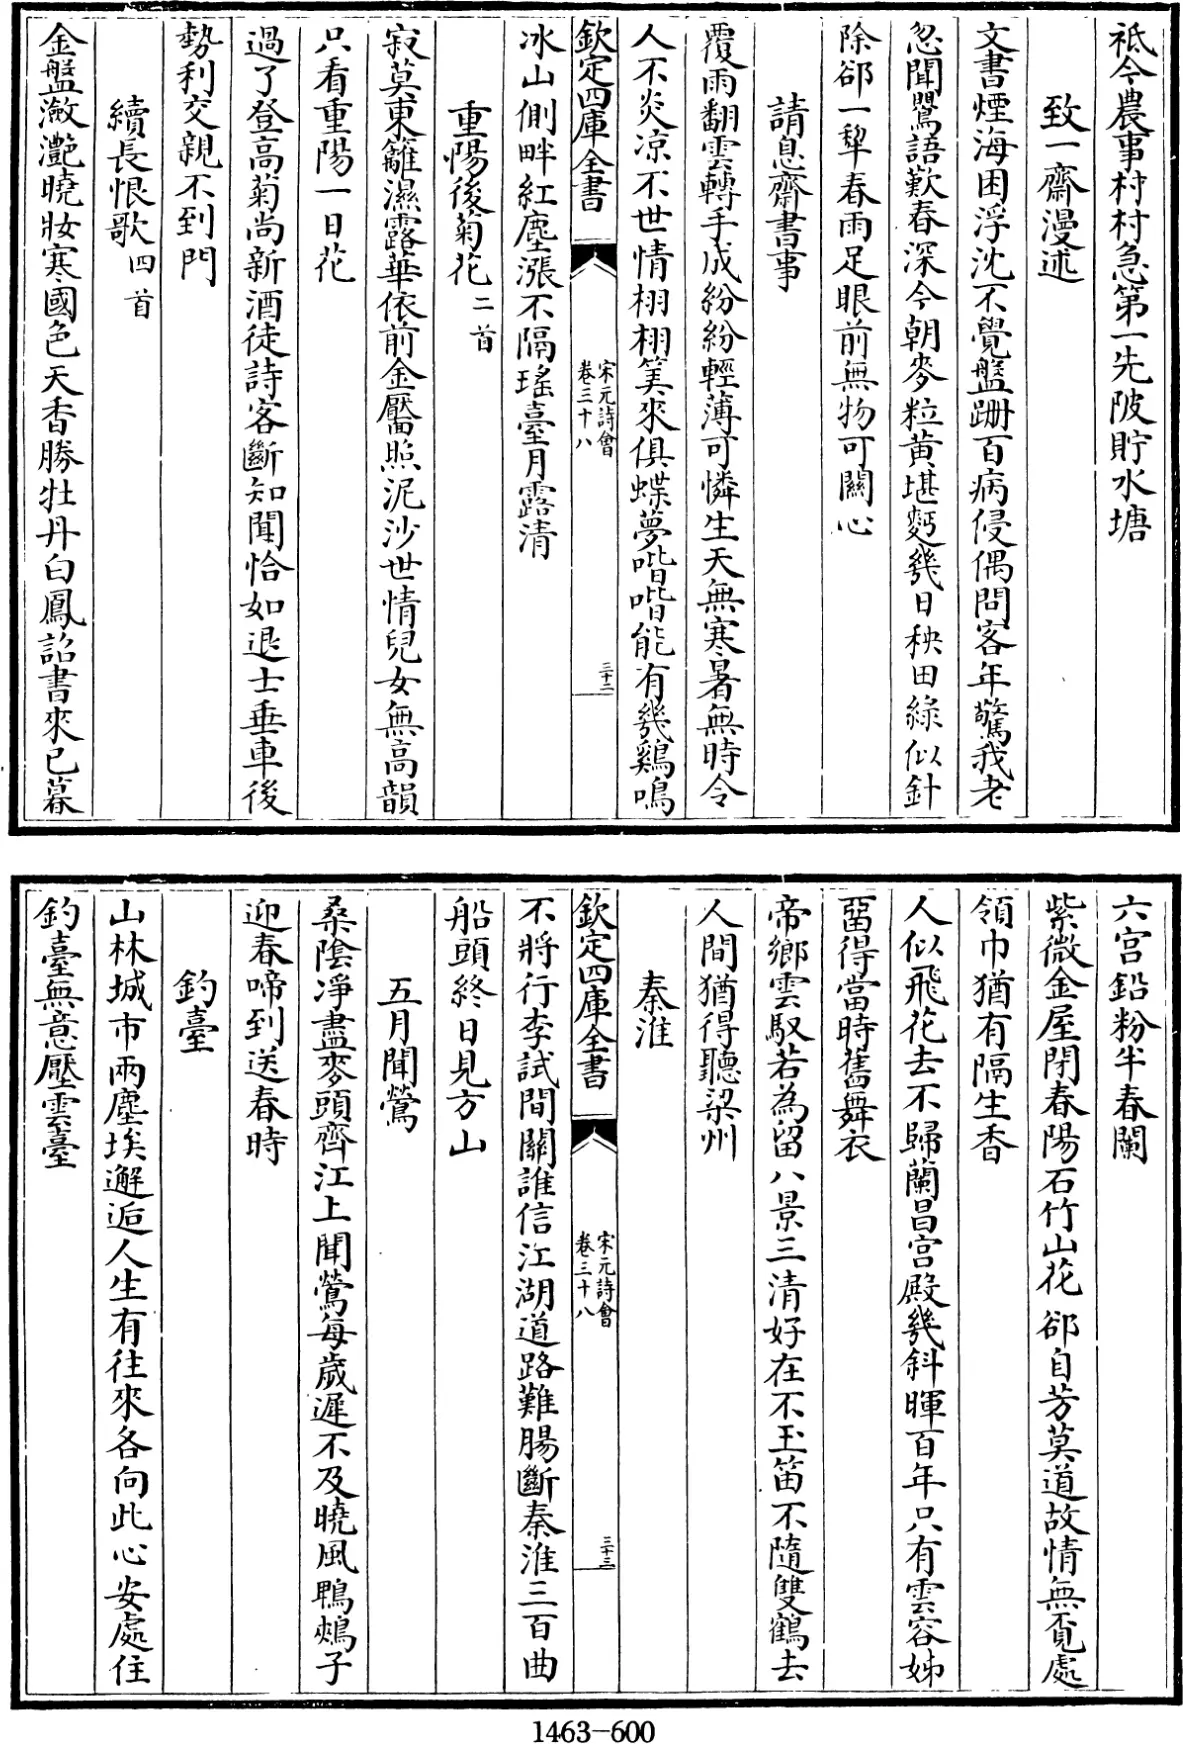 祗今農事村村急第一先陂貯水塘
致一齋漫述
文書煙海困浮沈不覺盤跚百病侵偶問客年驚我老
忽聞鸎語歎春深今朝麥粒黃堪麫幾日秧田綠似針
除郤一犂春雨足眼前無物可關心
請息齋書事
覆雨翻雲轉手成紛紛輕薄可憐生天無寒暑無時令
人不炎涼不世情栩栩筭來俱蝶夢喈喈能有幾鷄鳴
欽定四庫全書
宋元詩會
卷三十八
三十二
冰山側畔紅塵漲不隔瑤臺月露清
重陽後菊花二首
寂莫東籬濕露華依前金靨照泥沙世情兒女無高韻
只看重陽一日花
過了登高菊尚新酒徒詩客斷知聞恰如退士垂車後
勢利交親不到門
續長恨歌四首
金盤瀲灧曉妝寒國色天香勝牡丹白鳳詔書來已暮
六宮鉛粉半春闌
紫微金屋閉春陽石竹山花郤自芳莫道故情無覔處
領巾猶有隔生香
人似飛花去不歸蘭昌宮殿幾斜暉百年只有雲容姊
留得當時舊舞衣
帝鄉雲馭若為留八景三清好在不玉笛不隨雙鶴去
人間猶得聽梁州
秦淮
欽定四庫全書
宋元詩會
卷三十八
三十三
不將行李試間關誰信江湖道路難腸斷秦淮三百曲
船頭終日見方山
五月聞鶯
桑陰凈盡麥頭齊江上聞鶯每歲遲不及曉風鴨鵊子
迎春啼到送春時
釣臺
山林城市兩塵埃邂逅人生有往來各向此心安處住
釣臺無意壓雲臺
1463-600